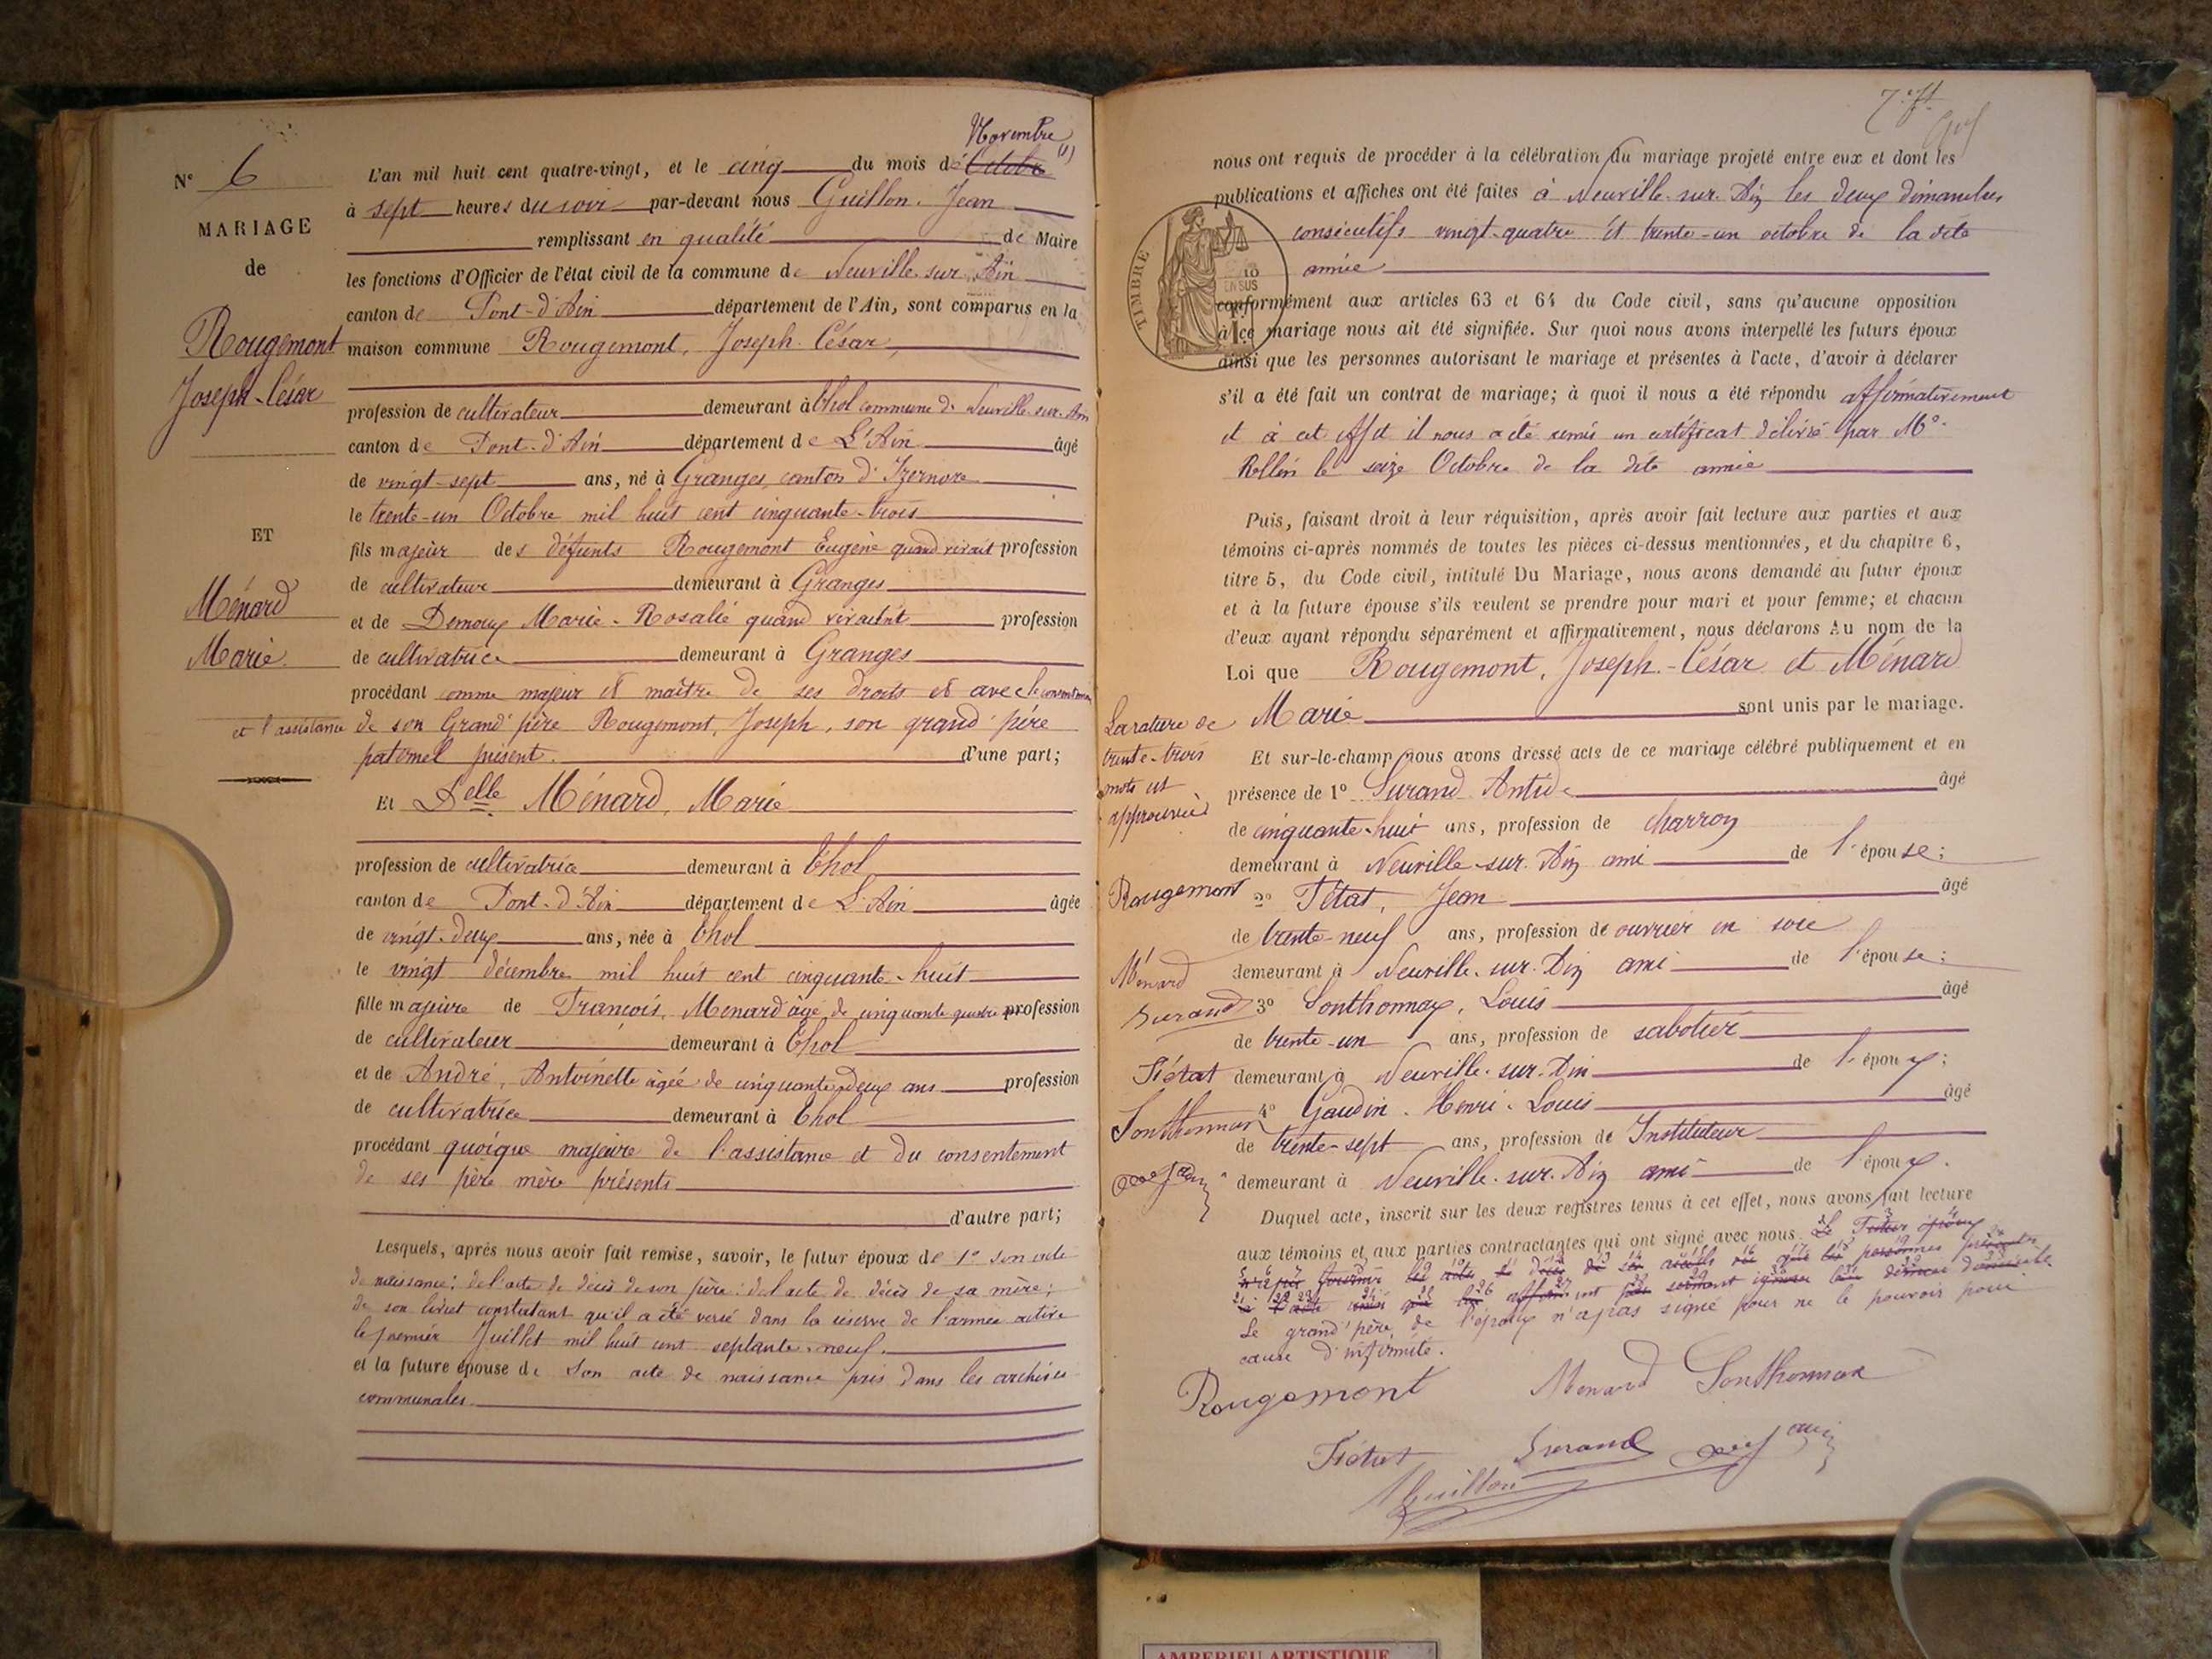 Novembre
N° 6
L'an mil huit cent quatre-vingt, et le cinq du mois de Octobre (1)
MARIAGE
à sept heures du soir par-devant nous Guillon, Jean
remplissant en qualité de Maire
de
les fonctions d'Officier de l'état civil de la commune de Neuville sur Ain
canton de Pont-d'Ain département de l'Ain, sont comparus en la
Rougemont
maison commune Rougemont, Joseph-César,
Joseph-César
profession de cultivateur demeurant à Thol commune de Neuville-sur-Ain
canton de Pont-d'Ain département de L'Ain âgé
de vingt-sept ans, né à Granges, canton d'Izernore
le trente-un Octobre mil huit cent cinquante-trois
ET
fils majeur des défunts Rougemont Eugène quand vivait profession
de cultivateur demeurant à Granges
Ménard
et de Demoux Marie-Rosalie quand vivait profession
Marie
de cultivatrice demeurant à Granges
procédant comme majeur et maître de ses droits et avec le consentement
et l'assistance de son Grand'père Rougemont, Joseph, son grand'père
paternel présent. d'une part;
Et Delle Ménard, Marie
profession de cultivatrice demeurant à Thol
canton de Pont-d'Ain département de L'Ain âgée
de vingt-deux ans, née à Thol
le vingt décembre mil huit cent cinquante-huit
fille majeure de François, Menard âgé de cinquante quatre profession
de cultivateur demeurant à Thol
et de André, Antoinette âgée de cinquante deux ans profession
de cultivatrice demeurant à Thol
procédant quoique majeure de l'assistance et du consentement
de ses père mère présents
d'autre part;
Lesquels, après nous avoir fait remise, savoir, le futur époux de 1° son acte
de naissance; de l'acte de décès de son père; de l'acte de décès de sa mère;
de son livret constatant qu'il a été versé dans la réserve de l'armée active
le premier Juillet mil huit cent septante-neuf.
et la future épouse de son acte de naissance pris dans les archives
communales.
nous ont requis de procéder à la célébration du mariage projeté entre eux et dont les
publications et affiches ont été faites à Neuville-sur-Ain les deux dimanches
consécutifs vingt-quatre et trente-un octobre de la dite
année
TIMBRE
10
EN SUS
conformément aux articles 63 et 64 du Code civil, sans qu'aucune opposition
à ce mariage nous ait été signifiée. Sur quoi nous avons interpellé les futurs époux
ainsi que les personnes autorisant le mariage et présentes à l'acte, d'avoir à déclarer
s'il a été fait un contrat de mariage; à quoi il nous a été répondu affirmativement
et à cet effet il nous a été remis un certificat délivré par Me
Rollin le seize Octobre de la dite année
Puis, faisant droit à leur réquisition, après avoir fait lecture aux parties et aux
témoins ci-après nommés de toutes les pièces ci-dessus mentionnées, et du chapitre 6,
titre 5, du Code civil, intitulé Du Mariage, nous avons demandé au futur époux
et à la future épouse s'ils veulent se prendre pour mari et pour femme; et chacun
d'eux ayant répondu séparément et affirmativement, nous déclarons Au nom de la
Loi que Rougemont, Joseph-César et Ménard
Marie sont unis par le mariage.
La rature de
trente-trois
mots est
approuvée
Et sur-le-champ nous avons dressé acte de ce mariage célébré publiquement et en
présence de 1° Surand Antide âgé
de cinquante-huit ans, profession de charron
demeurant à Neuville-sur-Ain ami de l'épouse;
Rougemont
2° Tétat, Jean âgé
de trente-neuf ans, profession de ouvrier en soie
Ménard
demeurant à Neuville-sur-Ain ami de l'épouse;
Surand
3° Sonthonnax, Louis âgé
de trente-un ans, profession de sabotier
Tétat
demeurant à Neuville-sur-Ain de l'époux;
Sonthonnax
4° Gaudin-Henri-Louis âgé
de trente-sept ans, profession de Instituteur
demeurant à Neuville-sur-Ain ami de l'époux.
Duquel acte, inscrit sur les deux registres tenus à cet effet, nous avons fait lecture
aux témoins et aux parties contractantes qui ont signé avec nous.
Le grand'père de l'époux n'a pas signé pour ne le pouvoir pour
cause d'infirmité.
Rougemont Menard Sonthonnax
Tétat Surand
Guillon
AMBERIEU ARTISTIQUE